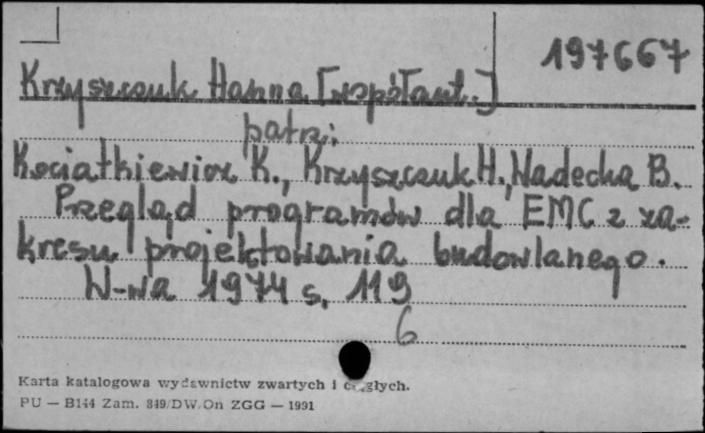 197667
Krzyszczuk Hanna [współaut.]
patrz:
Kociatkiewicz K., Krzyszczuk H., Nadecka B.
Przegląd programów dla EMC z za-
kresu projektowania budowlanego.
W-wa 1974 s. 119
6
Karta katalogowa wydawnictw zwartych i ciągłych.
PU — B144 Zam. 849/DW/On ZGG — 1991